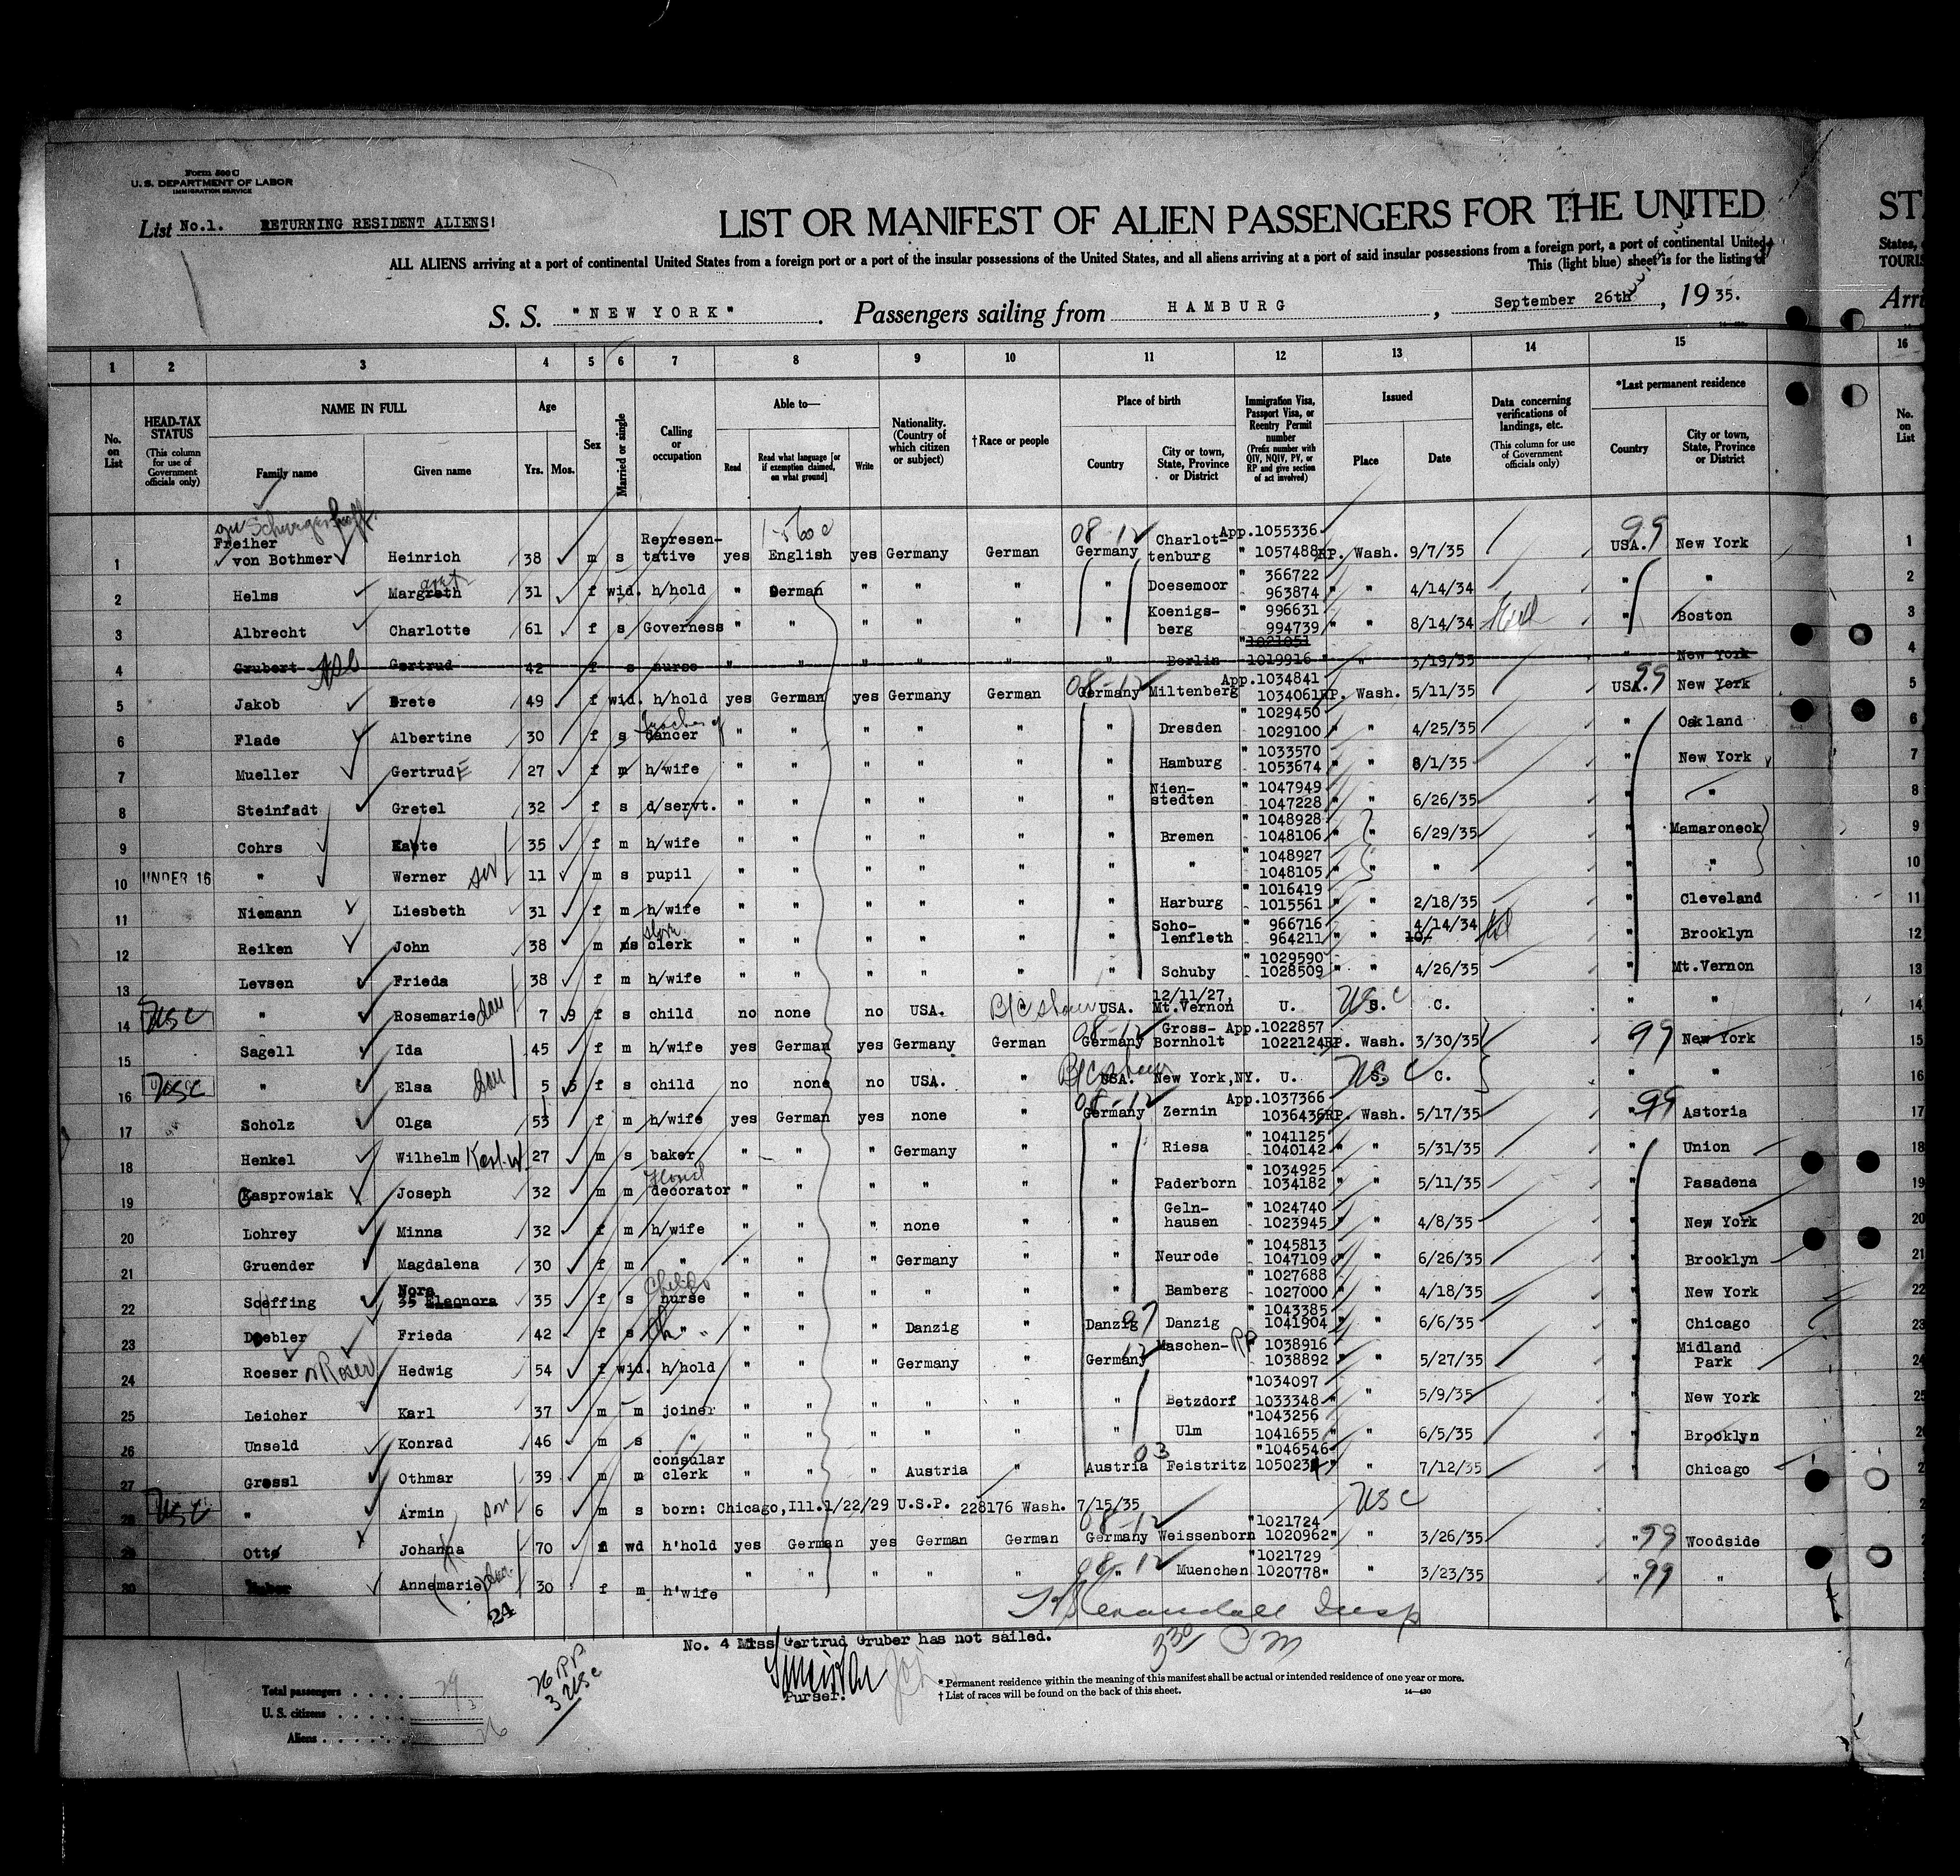 Form 500 C
U. S. DEPARTMENT OF LABOR
IMMIGRATION SERVICE
List No.1. RETURNING RESIDENT ALIENS!
LIST OR MANIFEST OF ALIEN PASSENGERS FOR THE UNITED
ALL ALIENS arriving at a port of continental United States from a foreign port or a port of the insular possessions of the United States, and all aliens arriving at a port of said insular possessions from a foreign port, a port of continental United
This (light blue) sheet is for the listing of
S. S. "NEW YORK". Passengers sailing from HAMBURG, September 26th, 1935.
1 2 3 4 5 6 7 8 9 10 11 12 13 14 15 16
No. on List
HEAD-TAX STATUS (This column for use of Government officials only)
NAME IN FULL Family name Given name
Age Yrs. Mos.
Sex
Married or single
Calling or occupation
Able to— Read Read what language [or if exemption claimed, on what ground] Write
Nationality. (Country of which citizen or subject)
†Race or people
Place of birth Country City or town, State, Province or District
Immigration Visa, Passport Visa, or Reentry Permit number (Prefix number with QIV, NQIV, PV, or RP and give section of act involved)
Issued Place Date
Data concerning verifications of landings, etc. (This column for use of Government officials only)
*Last permanent residence Country City or town, State, Province or District
No. on List
1 Freiher von Bothmer Heinrich 38 m s Represen-tative yes English yes Germany German 08-12 Germany Charlot-tenburg App.1055336 " 1057488 RP. Wash. 9/7/35 99 USA. New York 1
2 Helms Margreth 31 f wid. h/hold " German " " " " Doesemoor " 366722 963874 " " 4/14/34 " " 2
3 Albrecht Charlotte 61 f s Governess " " " " " " Koenigs-berg " 996631 994739 " " 8/14/34 " Boston 3
4 Grubert Gertrud 42 f s nurse " " " " " " Berlin "1021051 1019916 " " 3/19/35 New York 4
5 Jakob Grete 49 f wid. h/hold yes German yes Germany German 08-12 Germany Miltenberg App.1034841 1034061 RP. Wash. 5/11/35 USA. 99 New York 5
6 Flade Albertine 30 f s Teacher of dancer " " " " " " Dresden " 1029450 1029100 " " 4/25/35 " Oakland 6
7 Mueller GertrudE 27 f m h/wife " " " " " " Hamburg " 1033570 1053674 " " 8/1/35 " New York 7
8 Steinfadt Gretel 32 f s d/servt. " " " " " " Nien-stedten " 1047949 1047228 " " 6/26/35 " " 8
9 Cohrs Kaete 35 f m h/wife " " " " " " Bremen " 1048928 1048106 " " 6/29/35 " Mamaroneck 9
10 UNDER 16 " Werner son 11 m s pupil " " " " " " " " 1048927 1048105 " " " " " 10
11 Niemann Liesbeth 31 f m h/wife " " " " " " Harburg " 1016419 1015561 " " 2/18/35 " Cleveland 11
12 Reiken John 38 m s clerk " " " " " " Scho-lenfleth " 966716 964211 " " 4/14/34 " Brooklyn 12
13 Levsen Frieda 38 f m h/wife " " " " " " Schuby " 1029590 1028509 " " 4/26/35 " Mt.Vernon 13
14 USC " Rosemarie dau 7 9 f s child no none no USA. B/C shown USA. 12/11/27, Mt.Vernon U. S. C. USC " " 14
15 Sagell Ida 45 f m h/wife yes German yes Germany German 08-12 Germany Gross-Bornholt App.1022857 1022124 RP. Wash. 3/30/35 99 New York 15
16 USC " Elsa dau 5 5 f s child no none no USA. " B/C shown USA. New York,NY. U. S. C. USC " " 16
17 Scholz Olga 53 f m h/wife yes German yes none " 08-12 Germany Zernin App.1037366 1036436 RP. Wash. 5/17/35 " 99 Astoria 17
18 Henkel Wilhelm Karl-W. 27 m s baker " " " Germany " " Riesa " 1041125 1040142 " " 5/31/35 " Union 18
19 Kasprowiak Joseph 32 m m decorator " " " " " " Paderborn " 1034925 1034182 " " 5/11/35 " Pasadena 19
20 Lohrey Minna 32 f m h/wife " " " none " " Geln-hausen " 1024740 1023945 " " 4/8/35 " New York 20
21 Gruender Magdalena 30 f m " " " " Germany " " Neurode " 1045813 1047109 " " 6/26/35 " Brooklyn 21
22 Soeffing Nora Eleonora 35 f s nurse " " " " " " Bamberg " 1027688 1027000 " " 4/18/35 " New York 22
23 Doebler Frieda 42 f s " " " " Danzig " Danzig 97 Danzig " 1043385 1041904 " " 6/6/35 " Chicago 23
24 Roeser Roser Hedwig 54 f wid. h/hold " " " Germany " Germany 12 Maschen- RP " 1038916 1038892 " " 5/27/35 " Midland Park 24
25 Leicher Karl 37 m m joiner " " " " " " Betzdorf "1034097 1033348 " " 5/9/35 " New York 25
26 Unseld Konrad 46 m s " " " " " " " Ulm "1043256 1041655 " " 6/5/35 " Brooklyn
27 Grossl Othmar 39 m m consular clerk " " " Austria " Austria 03 Feistritz "1046546 105023 " " 7/12/35 " Chicago
28 USC " Armin son 6 m s born: Chicago,Ill.1/22/29 U.S.P. 228176 Wash. 7/15/35 USC
29 Otto Johanna 70 f wd h'hold yes German yes German German 08-12 Germany Weissenborn "1021724 1020962" " 3/26/35 " 99 Woodside
30 Annemarie dau. 30 f m h'wife " " " " " 08-12 " Muenchen "1021729 1020778" " 3/23/35 " 99 "
24
Crandall Insp
3 30 PM
No. 4 Miss Gertrud Gruber has not sailed.
Purser.
26 RP
3 USC
Total passengers . . . . 29
U. S. citizens . . . . . 3
Aliens . . . . . . 26
* Permanent residence within the meaning of this manifest shall be actual or intended residence of one year or more.
† List of races will be found on the back of this sheet.
14—430